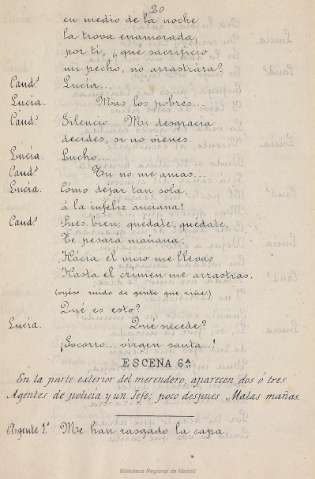 20
en medio de la noche
la trova enamorada
por ti, ¿qué sacrificio
mi pecho, no arrastrara?
Cand.º Lucía...
Lucía. Mas los pobres...
Cand.º Silencio. Mi desgracia
decides, si no vienes
Lucía. Lucho...
Cand.º Tu no me amas...
Lucía. Como dejar tan sola
á la infeliz anciana!
Cand.º Pues bien, quédate, quédate,
Te pesará mañana.
Hacia el vicio me llevas
Hasta el crimen me arrastras.
(oyese ruido de gente que riñe)
Qué es esto?
Lucía. Qué sucede?
¡Socorro, virgen santa!
ESCENA 6ª
En la parte exterior del merendero, aparecen dos ó tres
Agentes de policía y un Jefe; poco despues Malas mañas.
Agente 1.º Me han rasgado la capa.
Biblioteca Regional de Madrid